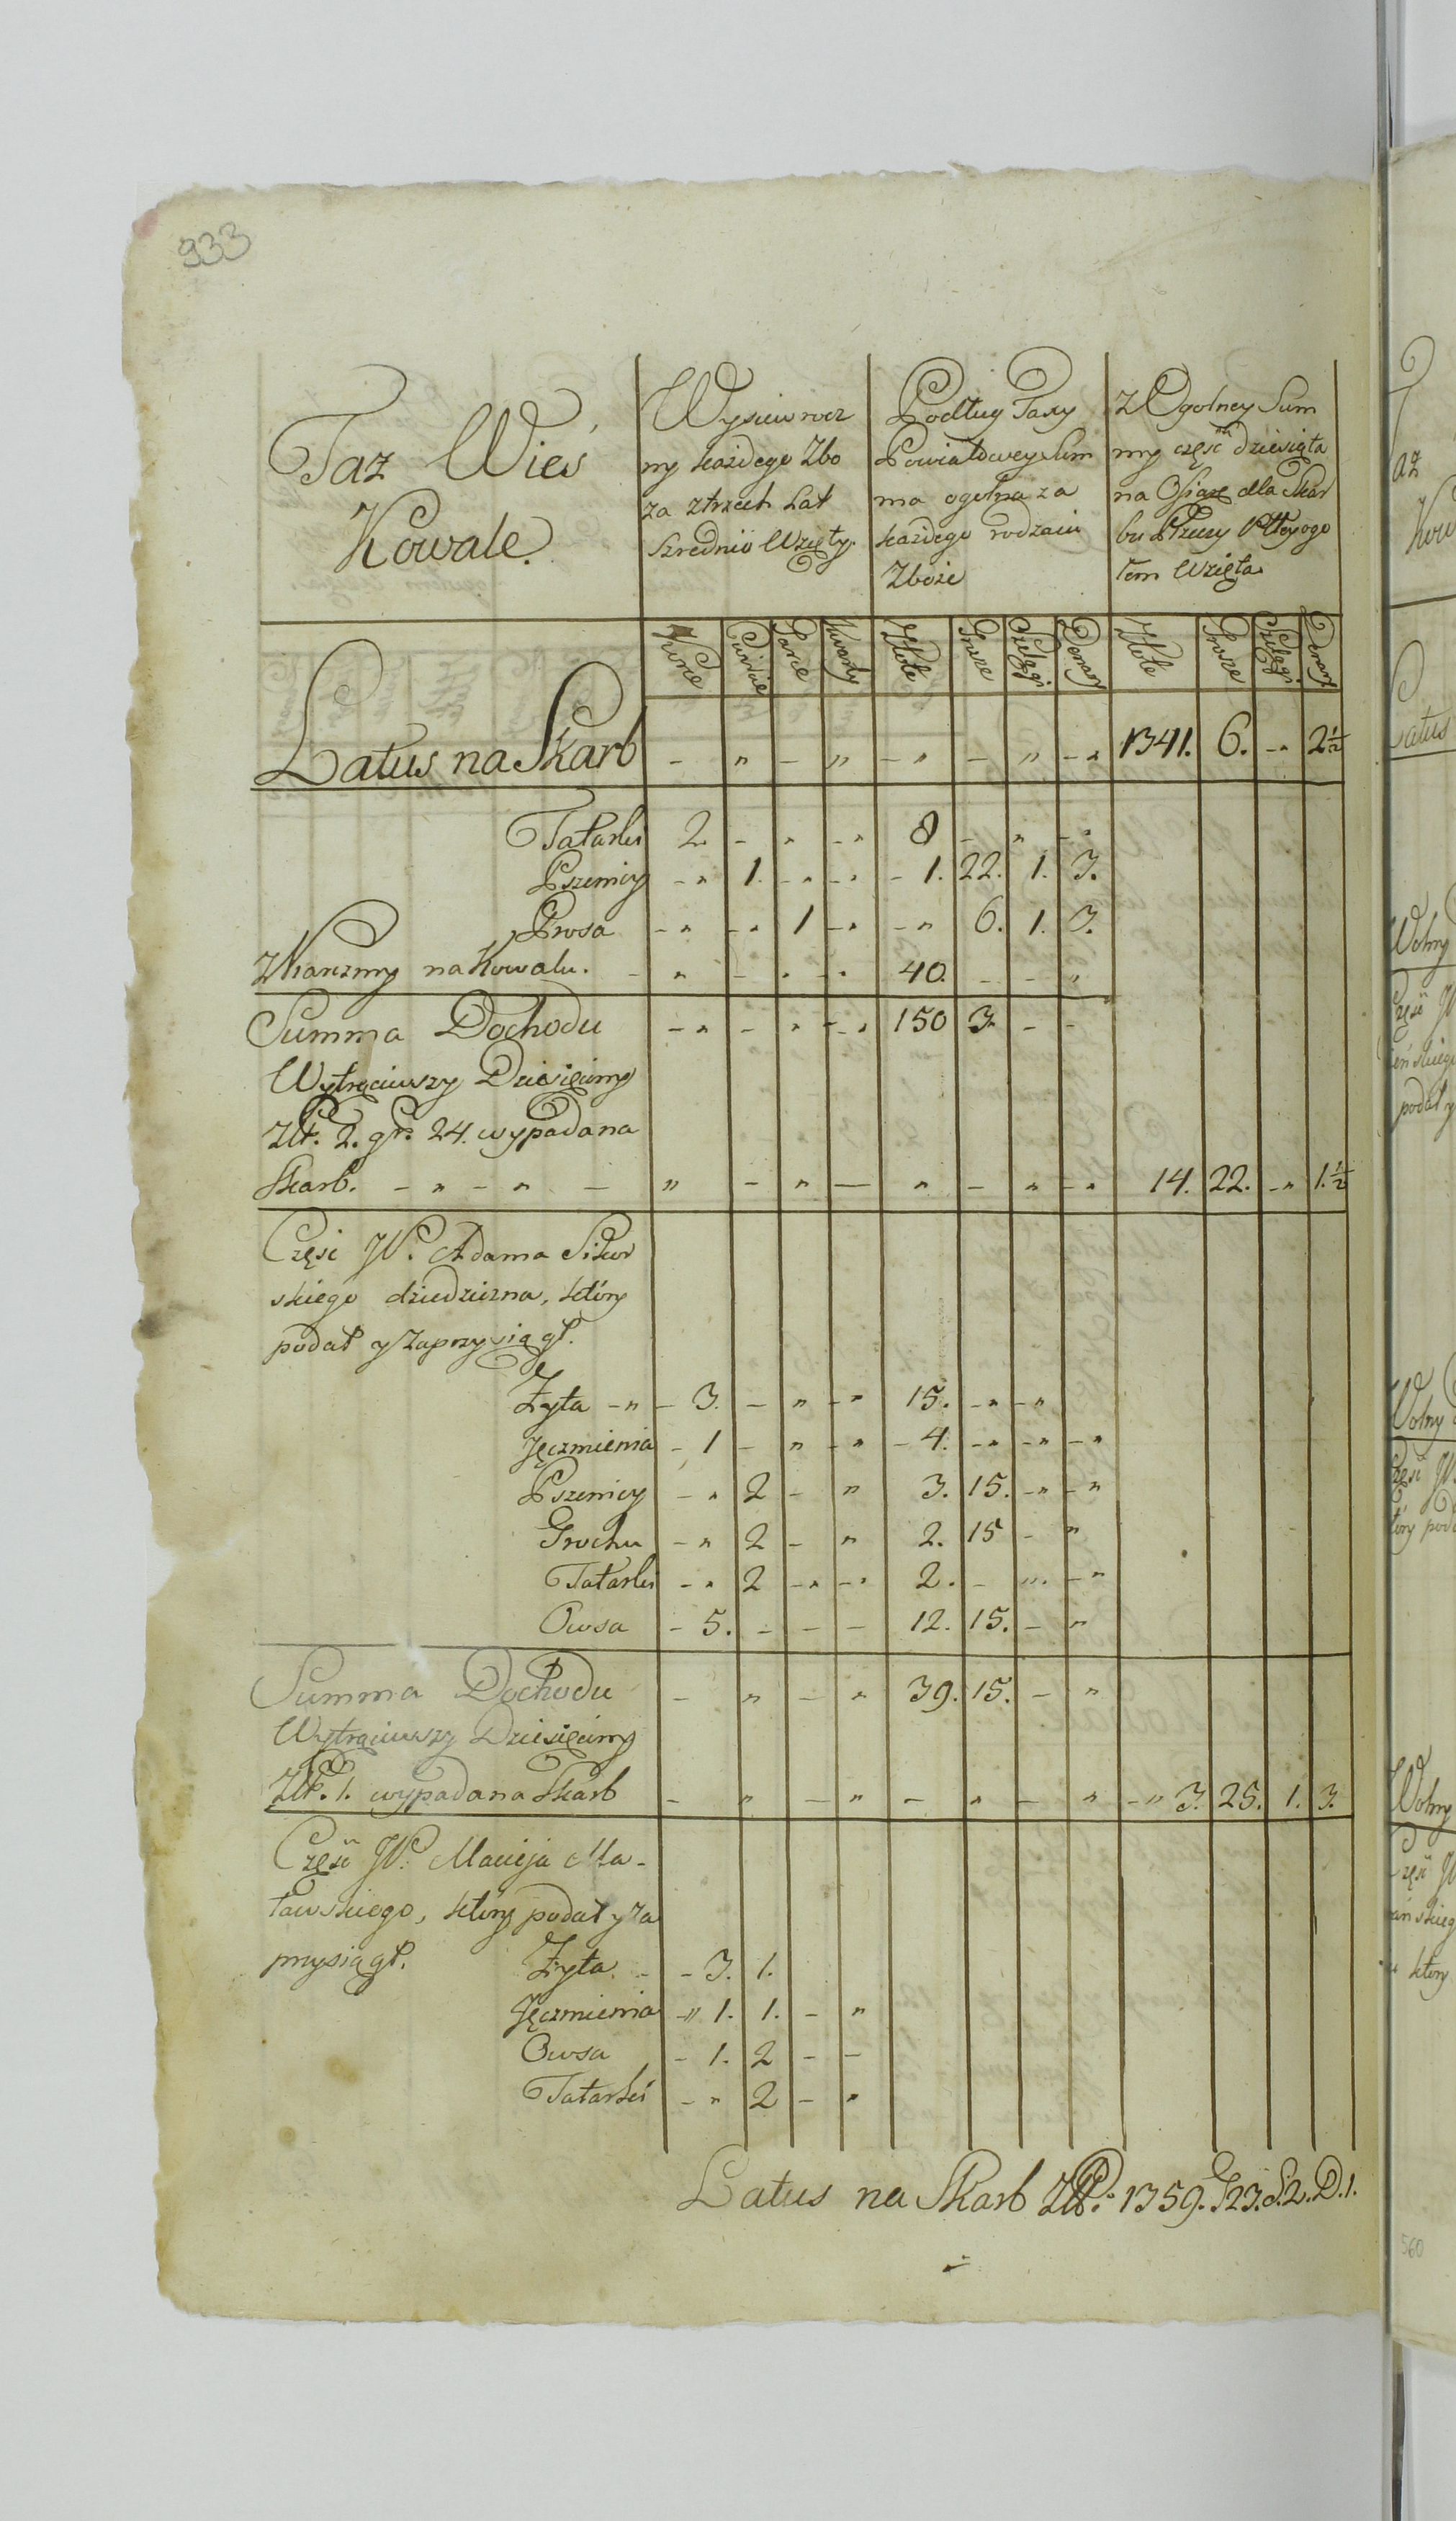 933
Taz Wieś
Kowale.
Wysiew rocz
ny każdego Zbo
za ztrzech Lat
Szrednio Wzięty.
Podług Taxy
Powiatowey Sum
ma ogolna za
każdego rodzaiu
Zboże
Z Ogolney Sum
my część dziesiąta
na Ofiarę dla Skar
bu Rzeczy Pttey ogo
łem Wzięta
Korce Cwiercie Garce Kwarty Złote Grosze Szelągi Denary Złote Grosze Szelągi Denary
Latus na Skarb - " - " - " - " - " 1341. 6. - " 2½
Tatarki 2. - " - " 8 - " - "
Pszenicy - " 1. - " - " - 1. 22. 1. 3.
Prosa - " - " 1 - " - " 6. 1. 3.
Z Karczmy na Kowalu. - " - " - " 40. - - "
Summa Dochodu - " - " - " 150 3. - -
Wytrąciwszy Dziesięciny
Złt. 2. gr. 24. wypada na
Skarb. - " - " - " - " - " - " - " 14. 22. - " 1.½
Częsć W. Adama Sikor
skiego dziedziczna, który
podał y zaprzysiągł.
Żyta - " - 3. - " - " 15. - " - "
Jęczmienia - 1 - " - " - 4. - " - " - "
Pszenicy - " 2 - " 3. 15. - " - "
Grochu - " 2 - " 2. 15 - "
Tatarki - " 2 - " - " 2. - " - "
Owsa - 5. - - - 12. 15. - "
Summa Dochodu - " - " 39. 15. - "
Wytrąciwszy Dziesięciny
Złt. 1. wypada na Skarb - " - " - " - " - " 3. 25. 1. 3.
Częsć W. Macieja Ma-
ławskiego, który podał y za
przysiągł. Żyta. - - 3. 1.
Jęczmienia - " 1. 1. - "
Owsa - 1. 2 - -
Tatarki - " 2 - "
Latus na Skarb Złt. 1359. G 23. S. 2. D. 1.
az
Kow
Latus
Wolny
podał y
Wolny
Wolny
który
560